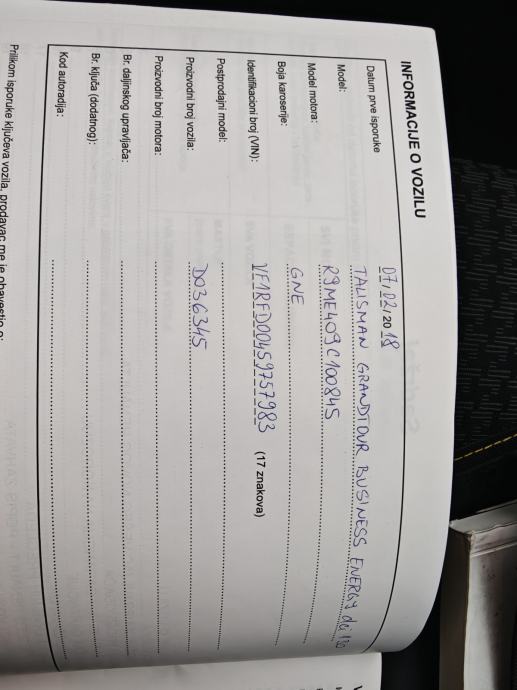 INFORMACIJE O VOZILU
Datum prve isporuke 07/02/2018
Model: TALISMAN GRANDTOUR BUSINESS ENERGY dci 130
Model motora: R9ME409C100845
Boja karoserije: GNE
Identifikacioni broj (VIN): VF1RFD00459757983 (17 znakova)
Postprodajni model:
Proizvodni broj vozila: D036345
Proizvodni broj motora:
Br. daljinskog upravljača:
Br. ključa (dodatnog):
Kod autoradija:
Prilikom isporuke ključeva vozila, prodavac me je obavestio o: